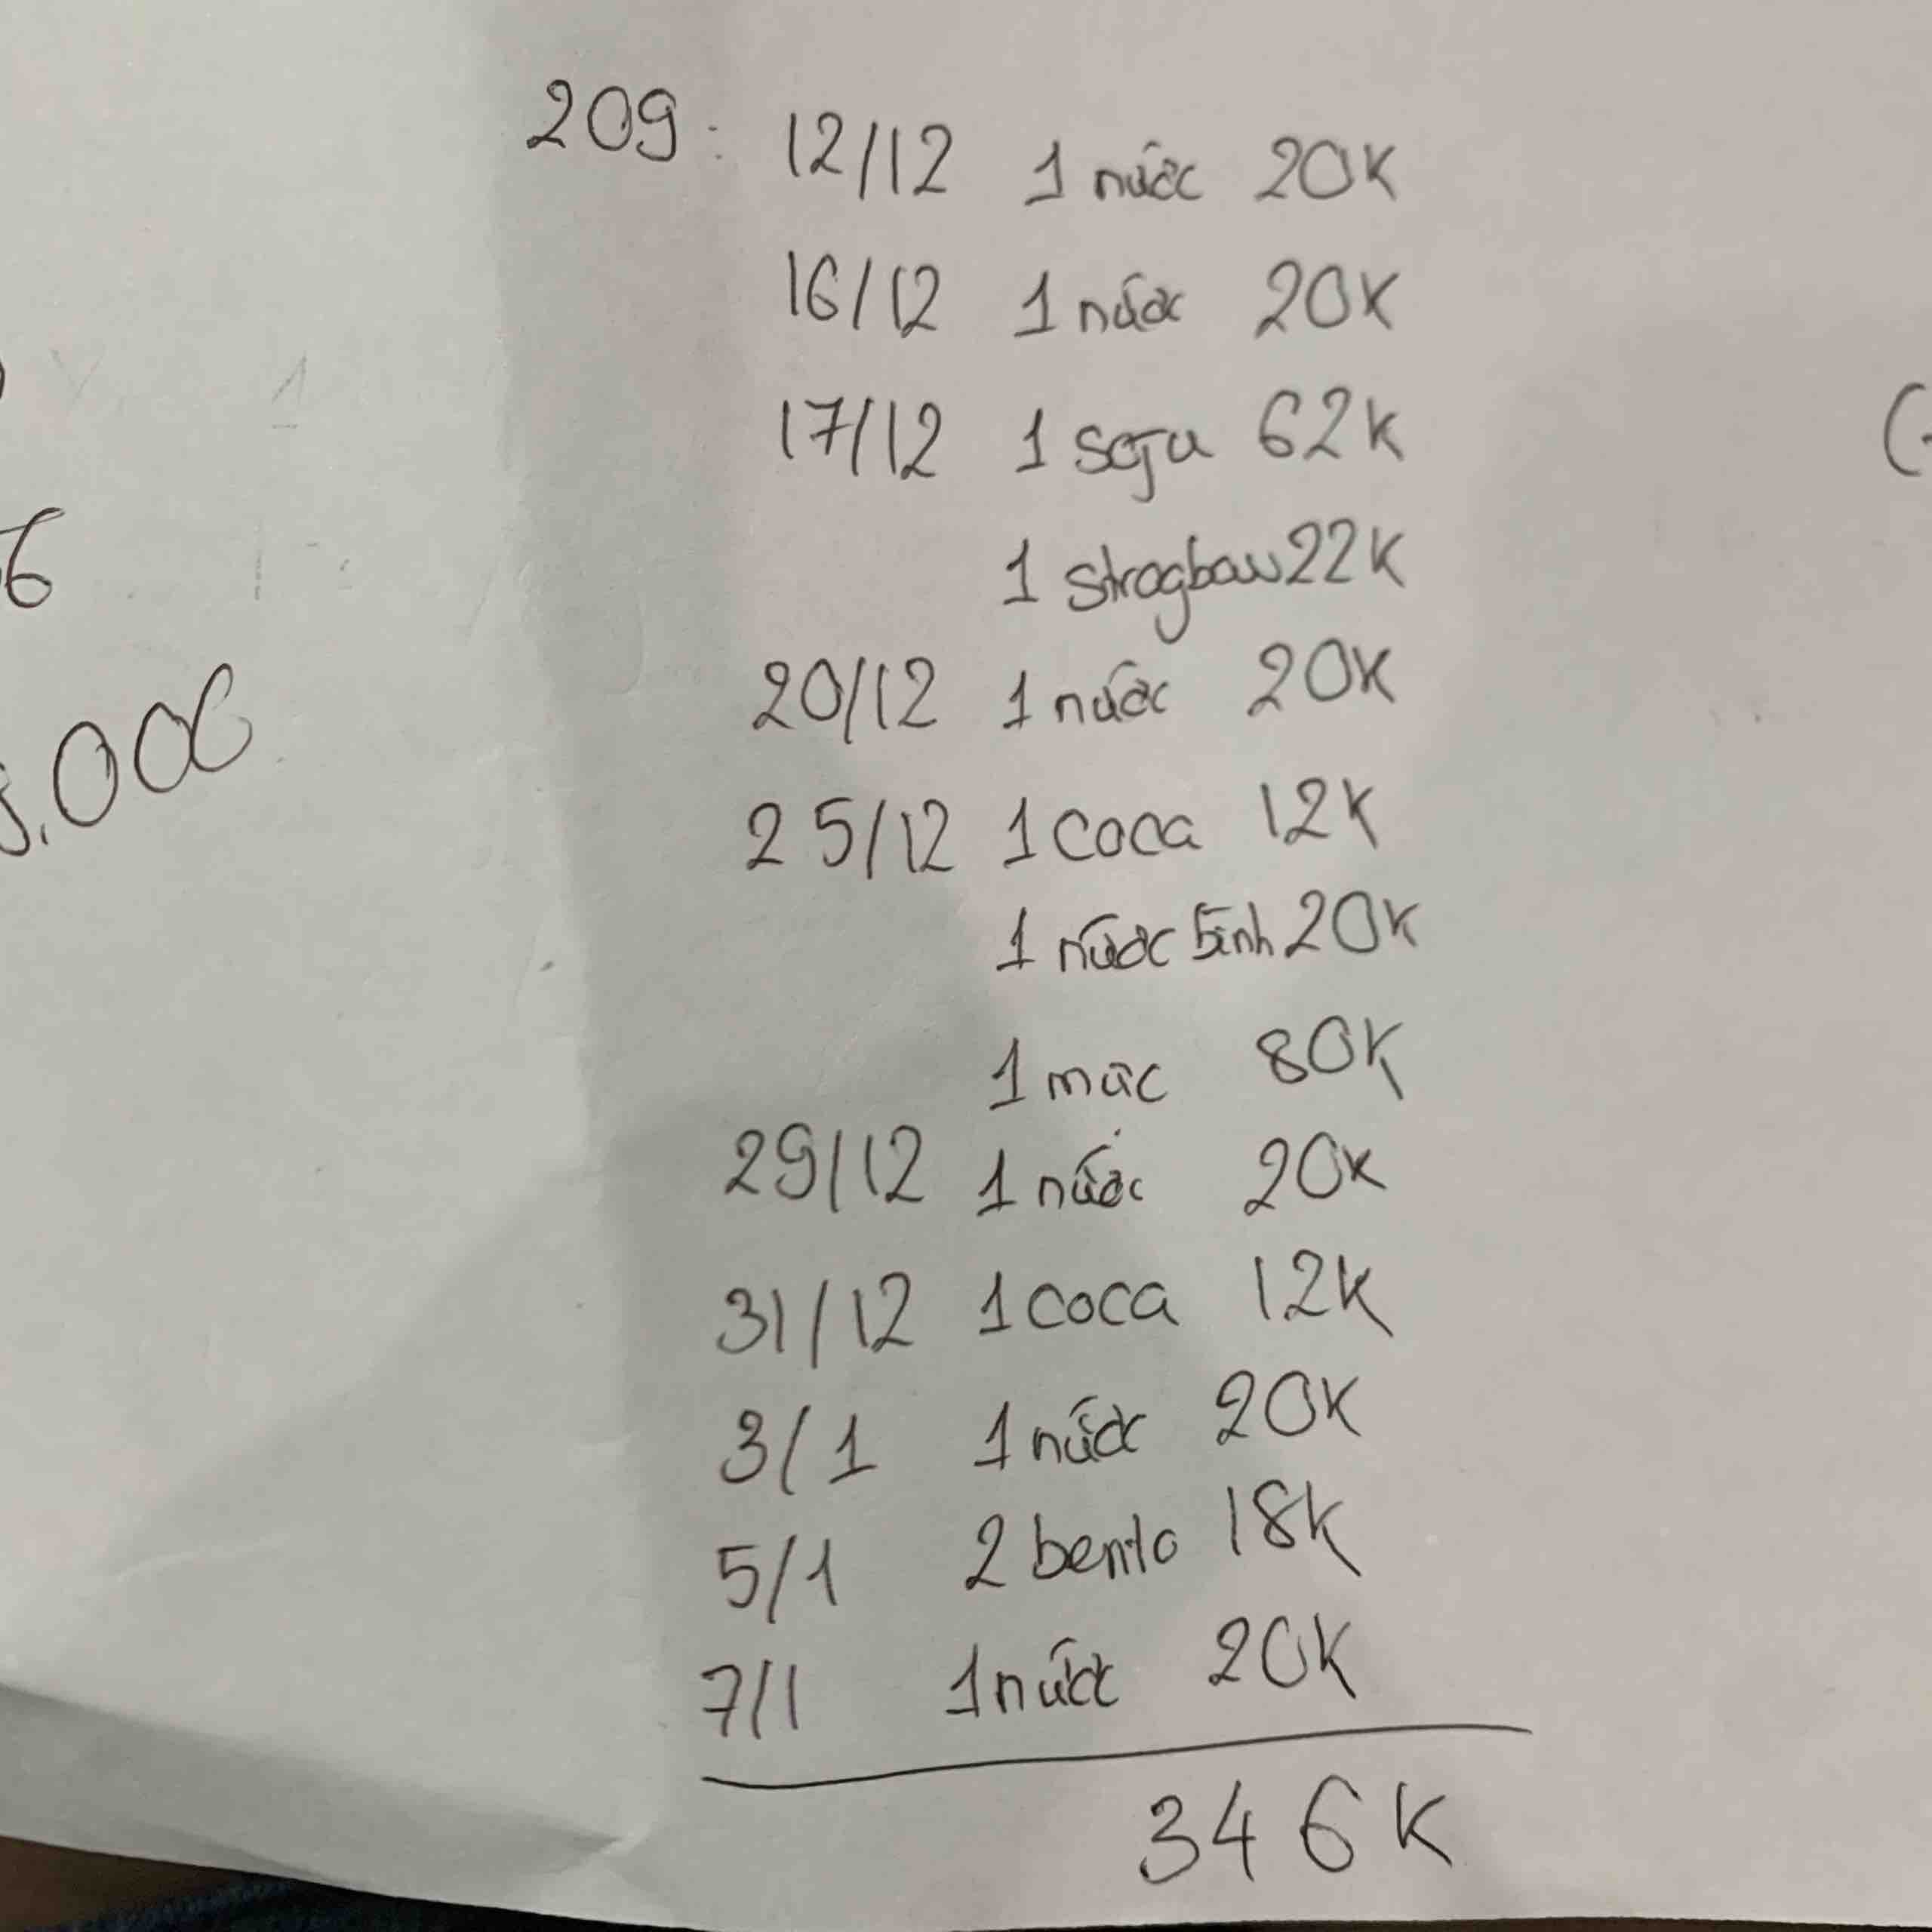 209: 12/12 1 nước 20K
16/12 1 nước 20K
17/12 1 soju 62K
1 strogbow 22K
20/12 1 nước 20K
25/12 1 coca 12K
1 nước bình 20K
1 mực 80K
29/12 1 nước 20K
31/12 1 coca 12K
3/1 1 nước 20K
5/1 2 bento 18K
7/1 1 nước 20K
346K
6
.000